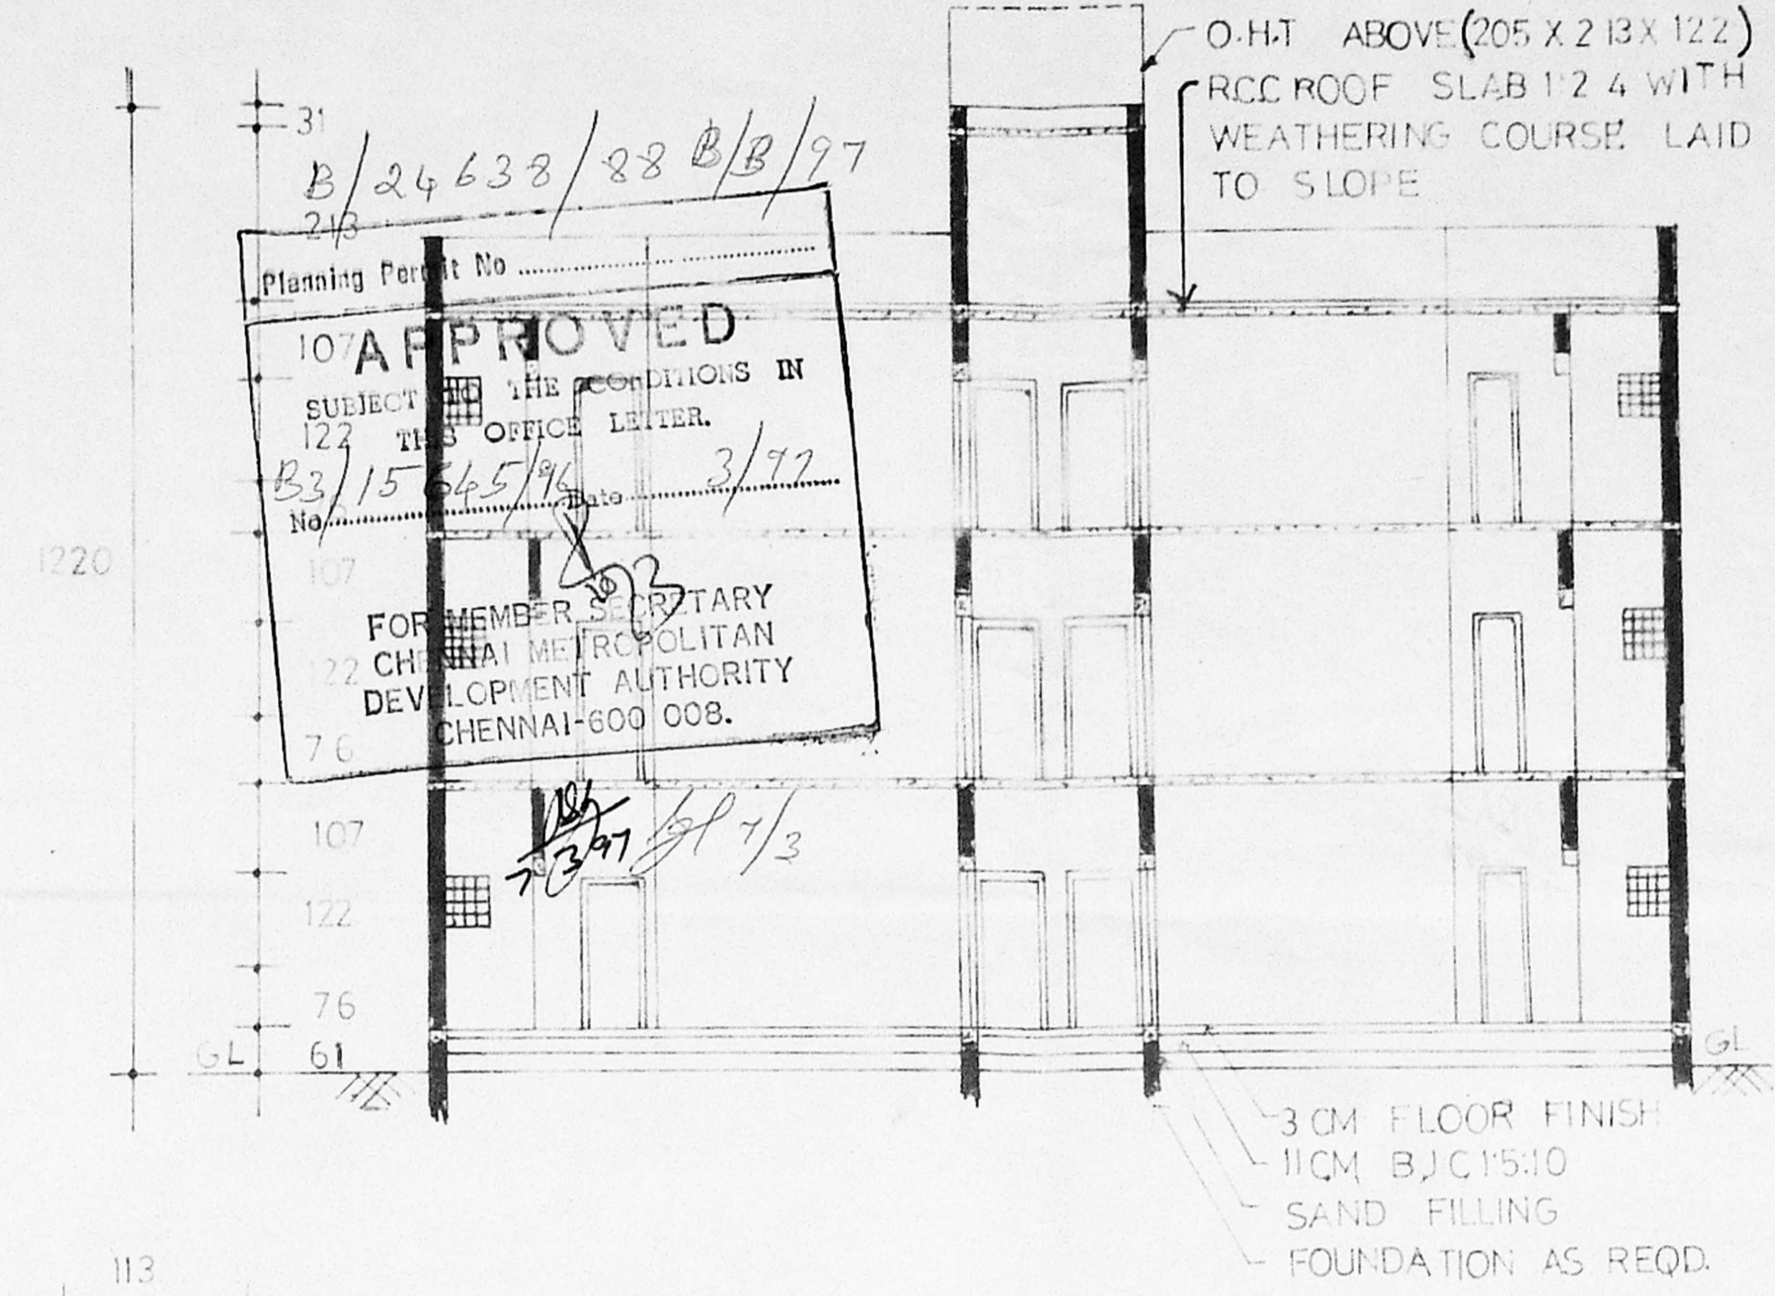 O.H.T ABOVE (205 X 213 X 122)
RCC ROOF SLAB 1:2:4 WITH
WEATHERING COURSE LAID
TO SLOPE
31
B/24638/88 B/B/97
213
Planning Permit No
107
APPROVED
SUBJECT TO THE CONDITIONS IN
122
THIS OFFICE LETTER.
B3/15645/96 3/97
No Date
1220
107
FOR MEMBER SECRETARY
CHENNAI METROPOLITAN
122
DEVELOPMENT AUTHORITY
CHENNAI-600 008.
76
107
7/3/97
7/3
122
76
GL
61
GL
3 CM FLOOR FINISH
11CM BJC 1:5:10
SAND FILLING
FOUNDATION AS REQD.
113